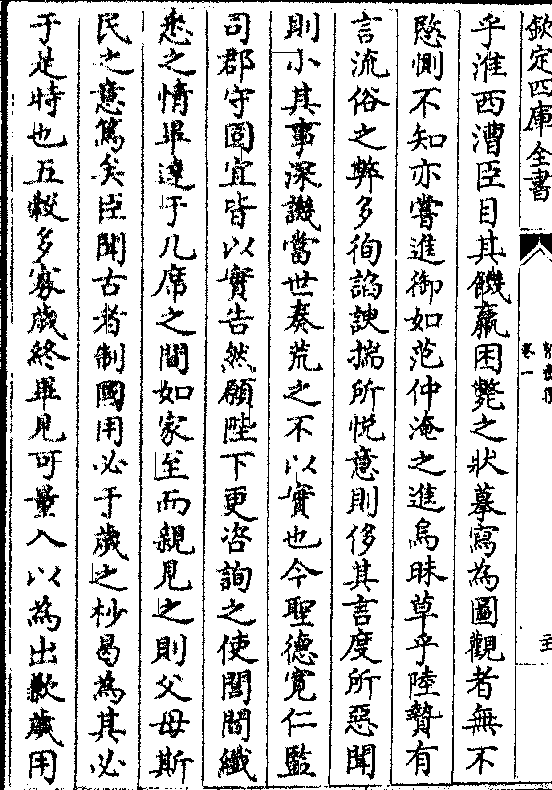 欽定四庫全書
卷一
乎淮西漕臣目其饑羸困斃之狀摹寫為圖觀者無不
愍惻不知亦嘗進御如范仲淹之進烏昧草乎陸贄有
言流俗之弊多徇諂諛揣所悅意則侈其言度所惡聞
則小其事深譏當世奏荒之不以實也今聖德寛仁監
司郡守固宜皆以實告然願陛下更咨詢之使閭閻纖
悉之情畢達于几席之間如家至而親見之則父母斯
民之意篤矣臣聞古者制國用必于歲之杪曷為其必
于是時也五穀多寡歲終畢見可量入以為出歉歲用